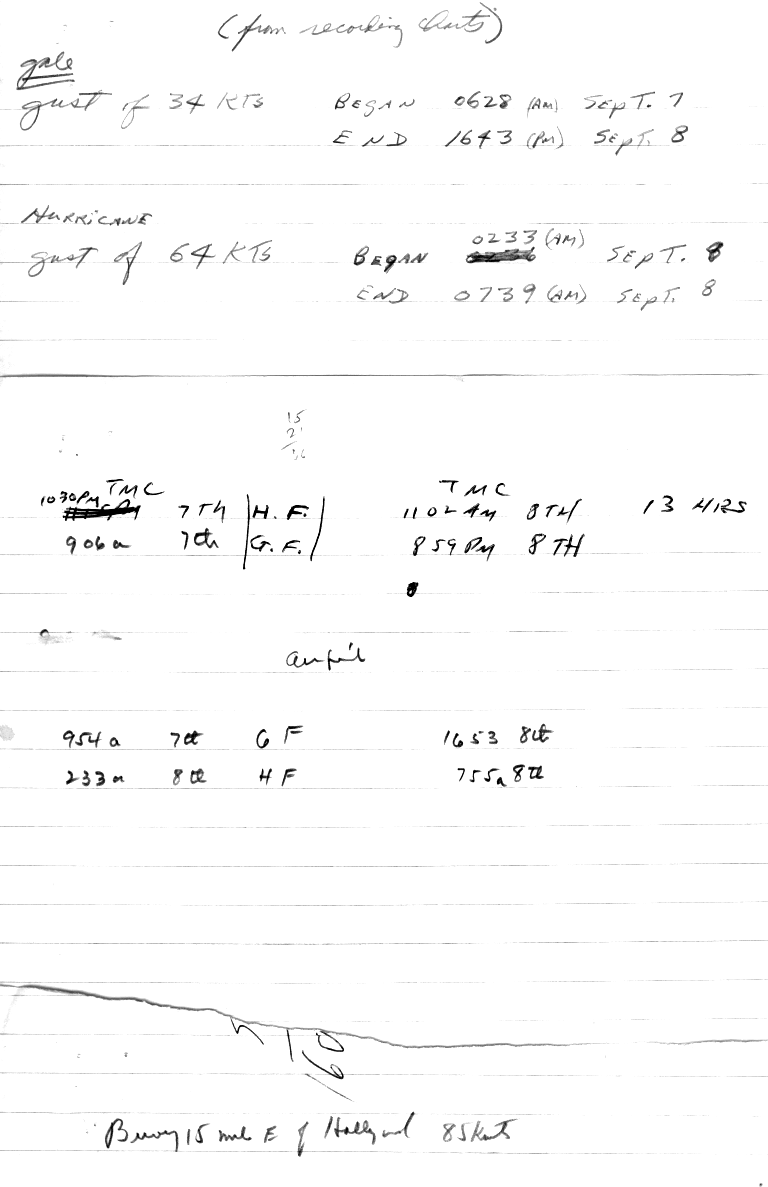 (from recording charts)
gale
gust of 34 KTS BEGAN 0628 (AM) SEPT. 7
END 1643 (PM) SEPT. 8
HURRICANE
0233 (AM)
gust of 64 KTS BEGAN SEPT. 8
END 0739 (AM) SEPT. 8
15
1030PM TMC TMC
7TH H.F. 1102 AM 8TH 13 HRS
906a 7th G.F. 859 PM 8TH
954a 7th G F 1653 8th
233a 8th H F 755a 8th
160
Buoy 15 mile E of Hollywood 85 Knots